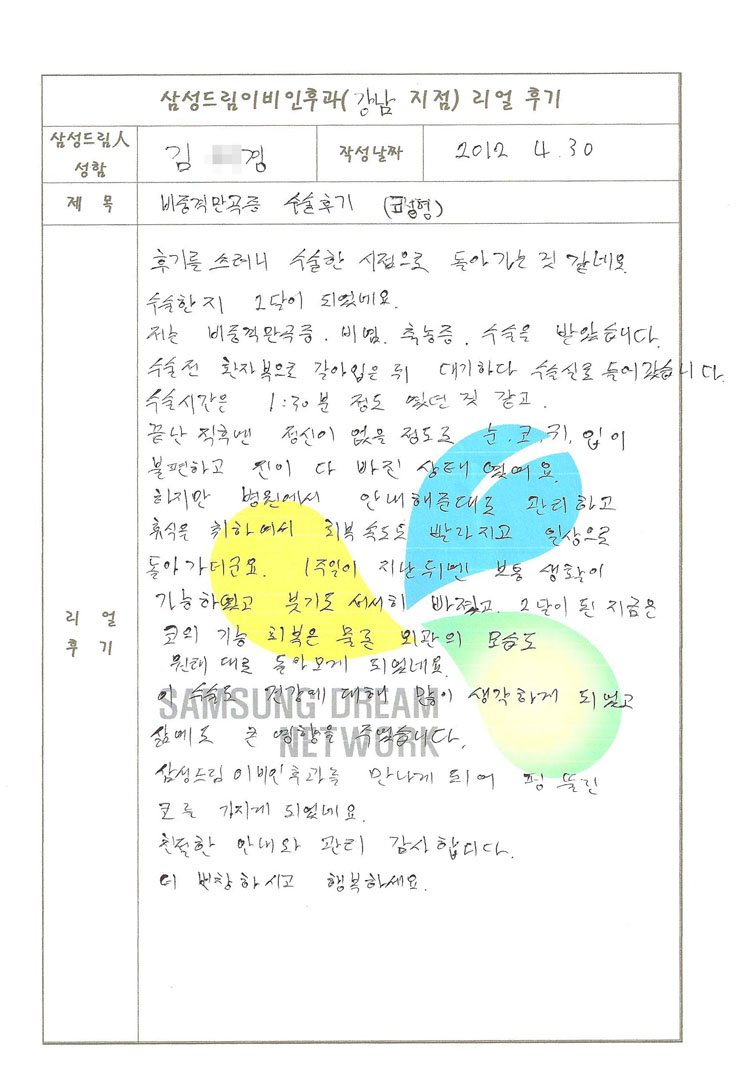 삼성드림이비인후과(강남 지점) 리얼 후기
삼성드림人
성함
김 경
작성날짜
2012 4.30
제 목
비중격만곡증 수술후기 (코성형)
리 얼
후 기
후기를 쓰려니 수술한 시점으로 돌아가는 것 같네요
수술한지 2달이 되었네요.
저는 비중격만곡증. 비염. 축농증. 수술을 받았습니다.
수술전 환자복으로 갈아입은 뒤 대기하다 수술실로 들어갔습니다.
수술시간은 1:30분 정도 였던 것 같고.
끝난 직후엔 정신이 없을 정도로 눈.코.귀.입이
불편하고 진이 다 빠진 상태 였어요.
하지만 병원에서 안내해준대로 관리하고
휴식을 취하여서 회복 속도도 빨라지고 일상으로
돌아가더군요. 1주일이 지난뒤엔 보통 생활이
가능하였고 붓기도 서서히 빠졌고. 2달이 된 지금은
코의 기능 회복은 물론 외관의 모습도
원래 대로 돌아오게 되었네요.
이 수술로 건강에 대해 많이 생각하게 되었고
삶에도 큰 영향을 주었습니다.
삼성드림 이비인후과를 만나게 되어 펑 뚫린
코를 가지게 되었네요.
친절한 안내와 관리 감사합니다.
더 번창하시고 행복하세요.
SAMSUNG DREAM
NETWORK